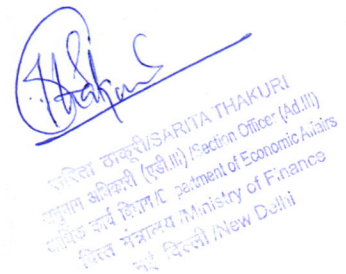 सरिता ठाकुरी/SARITA THAKURI
अनुभाग अधिकारी (एडी.III)/Section Officer (Ad.III)
आर्थिक कार्य विभाग/D partment of Economic Affairs
वित्त मंत्रालय /Ministry of Finance
नई दिल्ली /New Delhi